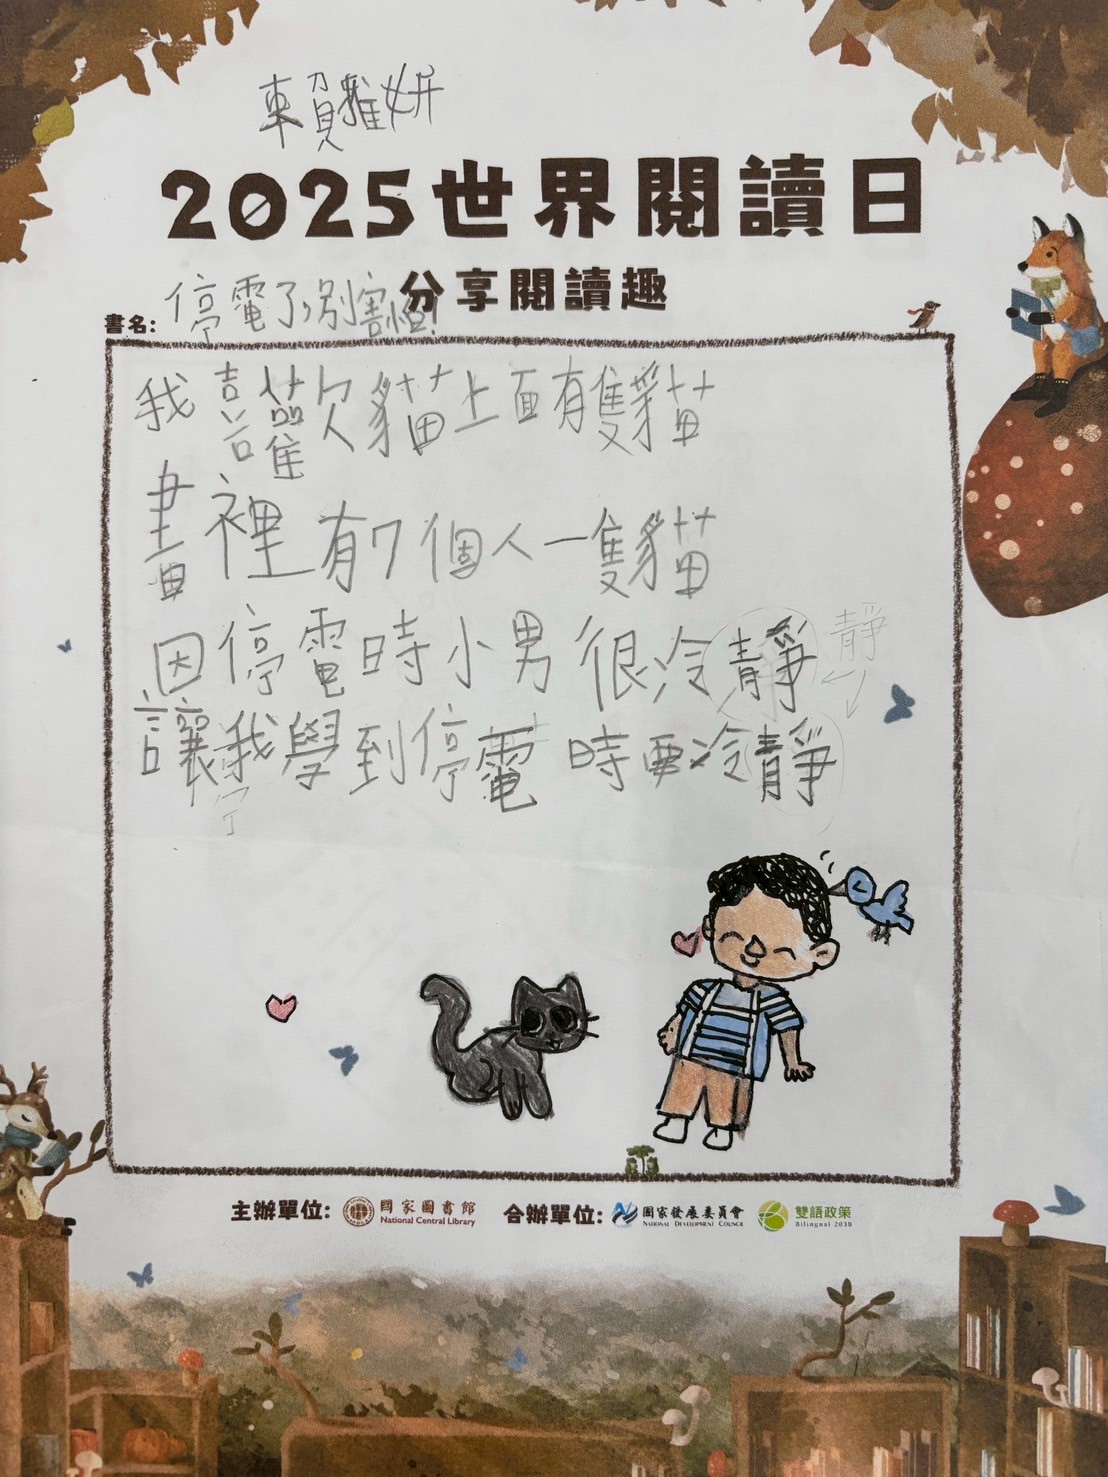 賴雅妍
2025世界閱讀日
分享閱讀趣
書名: 停電了,別害怕!
我喜歡貓上面有隻貓
畫裡有7個人一隻貓
因停電時小男很冷靜
靜
讓我學到停電時要冷靜
宁
主辦單位: 國家圖書館 National Central Library 合辦單位: 國家發展委員會 National Development Council 雙語政策 Bilingual 2030